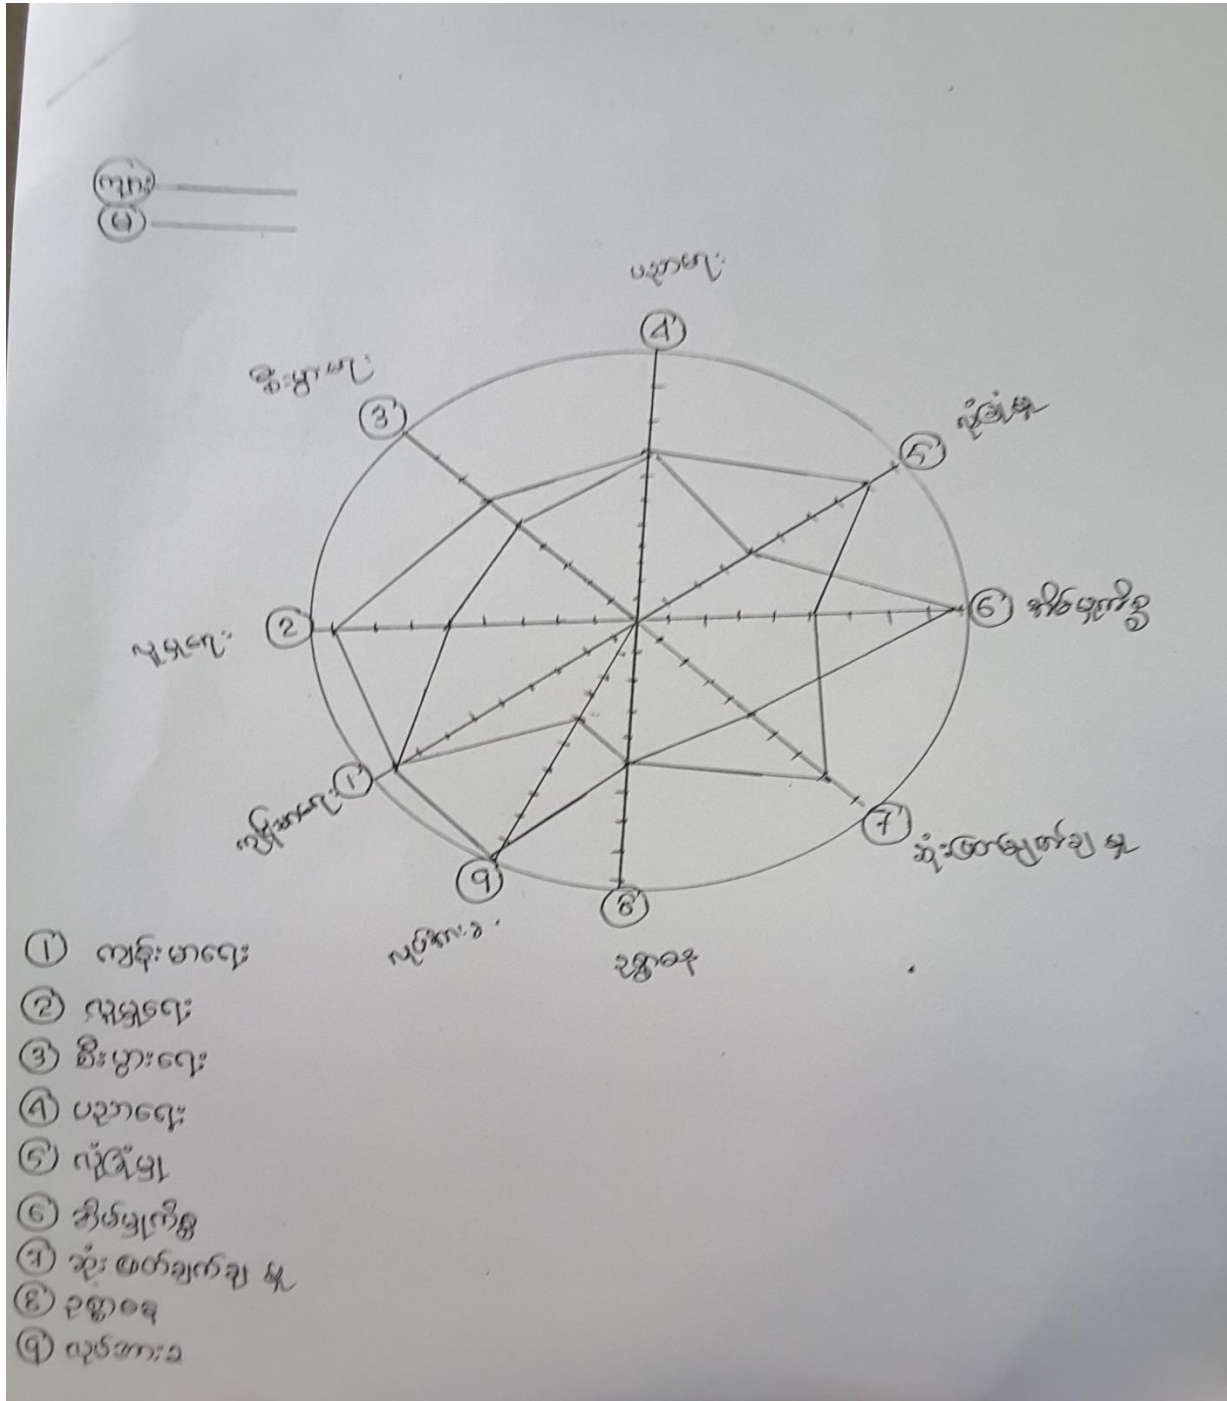 ကျား
မ
ပညာရေး
4
စီးပွားရေး
3
လုံခြုံမှု
5
လူမှုရေး
2
6 အိမ်မှုကိစ္စ
ကျန်းမာရေး
1
7
ဆုံးဖြတ်ချက်ချမှု
9
8
လုပ်အားခ
ဥစ္စာဓန
1 ကျန်းမာရေး
2 လူမှုရေး
3 စီးပွားရေး
4 ပညာရေး
5 လုံခြုံမှု
6 အိမ်မှုကိစ္စ
7 ဆုံးဖြတ်ချက်ချမှု
8 ဥစ္စာဓန
9 လုပ်အားခ